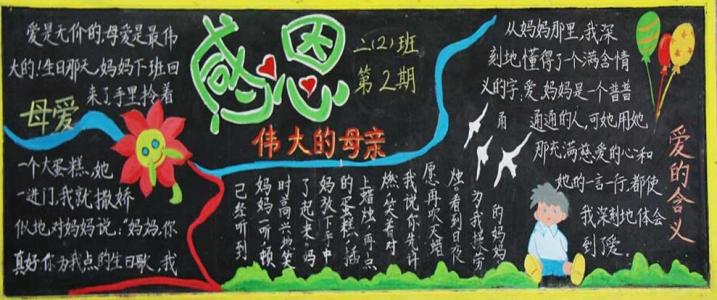 感恩
二(2)班
第2期
伟大的母亲
母爱
爱是无价的,母爱是最伟
大的!生日那天,妈妈下班回
来了手里拎着
一个大蛋糕,她
一进门,我就撒娇
似地对妈妈说:“妈妈,你
真好!你为我点的生日歌,我
己经听到
妈妈一听,顿
时高兴地笑
了起来。妈
妈放下手中
的蛋糕,插
上蜡烛,再点
燃,笑着对
我说你先许
愿,再吹灭蜡
烛。看到日夜
为我操劳
的妈妈
爱的含义
从妈妈那里,我深
刻地懂得了一个满含情
义的字:爱,妈妈是一个普普
通通的人,可她用她
那充满慈爱的心和
她的一言一行,都使
我深刻地体会
到了爱。